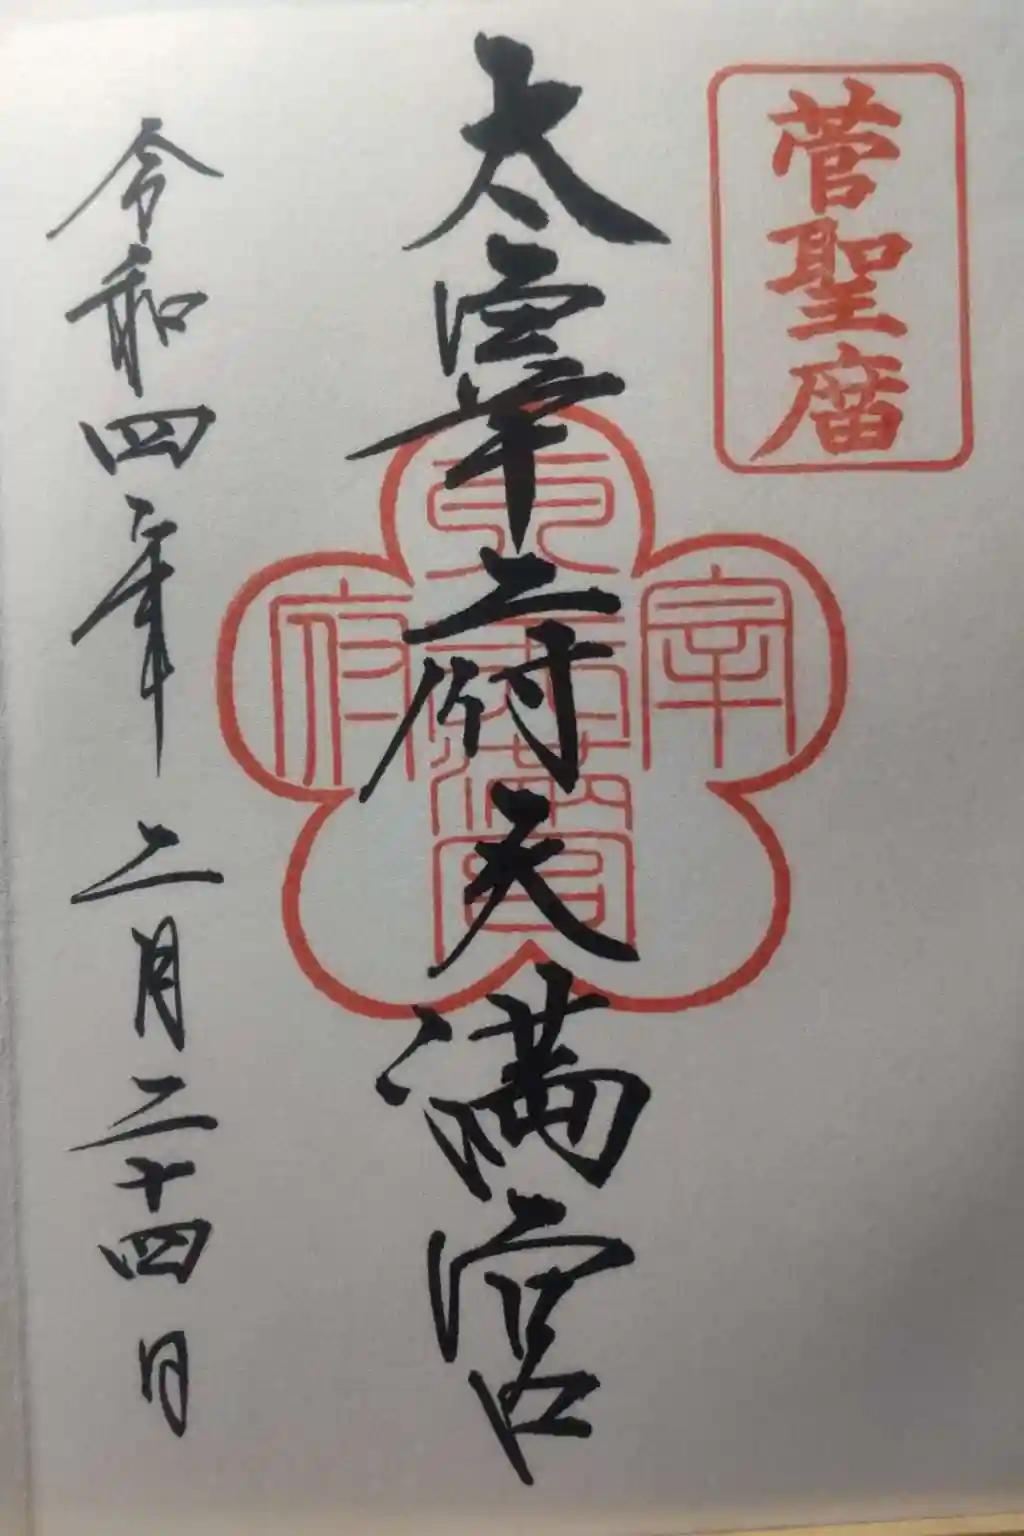 菅聖廟
太宰府天満宮
太宰府天満宮
令和四年二月二十四日